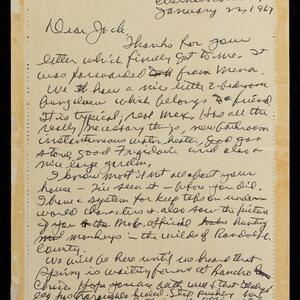 January 22, 1967
Dear Jack.
Thanks for your
letter which finally got to me. It
was forwarded from Mena.
We have a nice little 2-bedroom
bungalow which belongs to a friend
It is typical, real Mex. Has all the
really necessary things, new bathroom
instantaneous water heater, good gas
stove, good Frigidaire and also a
nice large garden.
I know most if not all about your
house - I've seen it - before you did.
I have a system for keep tabs on modern
world characters & also saw the picture
of you & the official
monkeys in the wilds of Randolph
County.
We will be here until we hear that
Spring is waiting for us at Rancho
Chico Hope you are both well that
leg has healed. Still